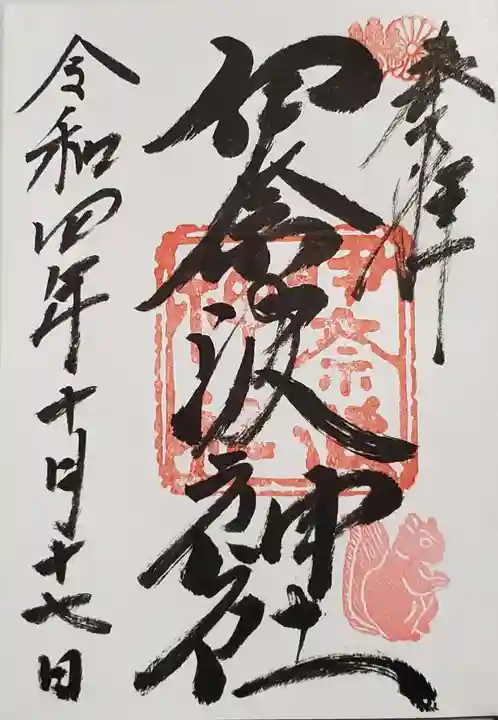 奉拝
伊奈波神社
令和四年十月十七日